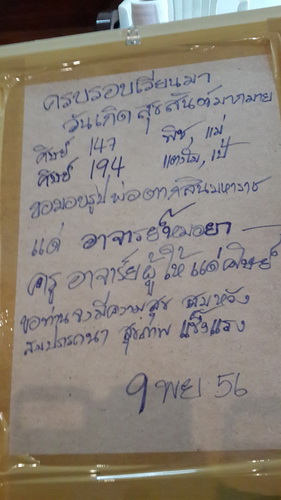 ครบรอบเรียนมา
วันเกิด สุขสันต์มากมาย
ศิษย์ 147 พีช, แม่
ศิษย์ 194 แตงโม, เป้
ขอมอบรูปพ่อตากสินมหาราช
แด่ อาจารย์หมอยา
ครู อาจารย์ผู้ให้แด่ศิษย์
ขอท่านจงมีความสุข สมหวัง
สมปรารถนา สุขภาพ แข็งแรง
9 พย 56